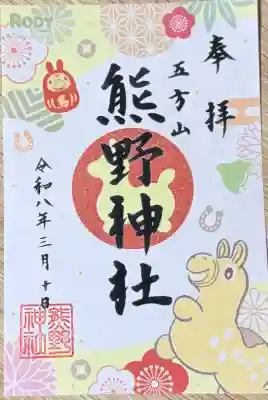 奉拝
五方山
熊野神社
令和八年三月十日
熊野
神社
RODY